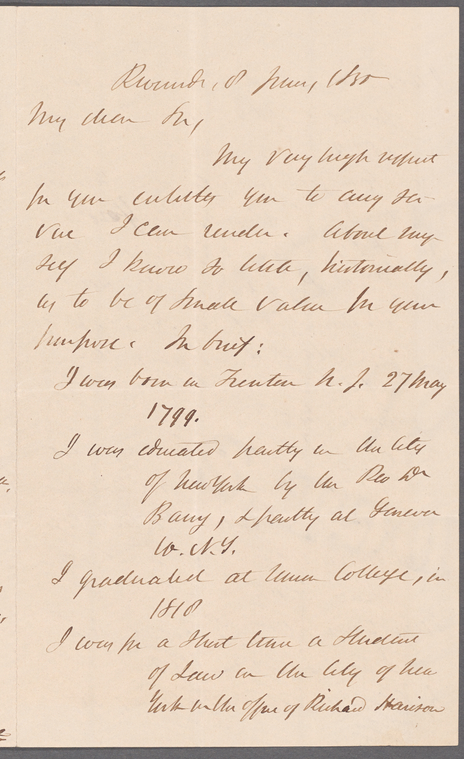 Riverside, 8 June, 1855
My dear Sir,
My very high respect
for you entitles you to any ser-
vice I can render. About my-
self I know so little, historically,
as to be of small value for your
purpose. In brief:
I was born in Trenton N. J. 27 May
1799.
I was educated partly in the City
of New York by the Rev Dr
Barry, & partly at Geneva
W. N.Y.
I graduated at Union College, in
1818
I was for a short time a Student
of Law in the City of New
York in the office of Richard Harison